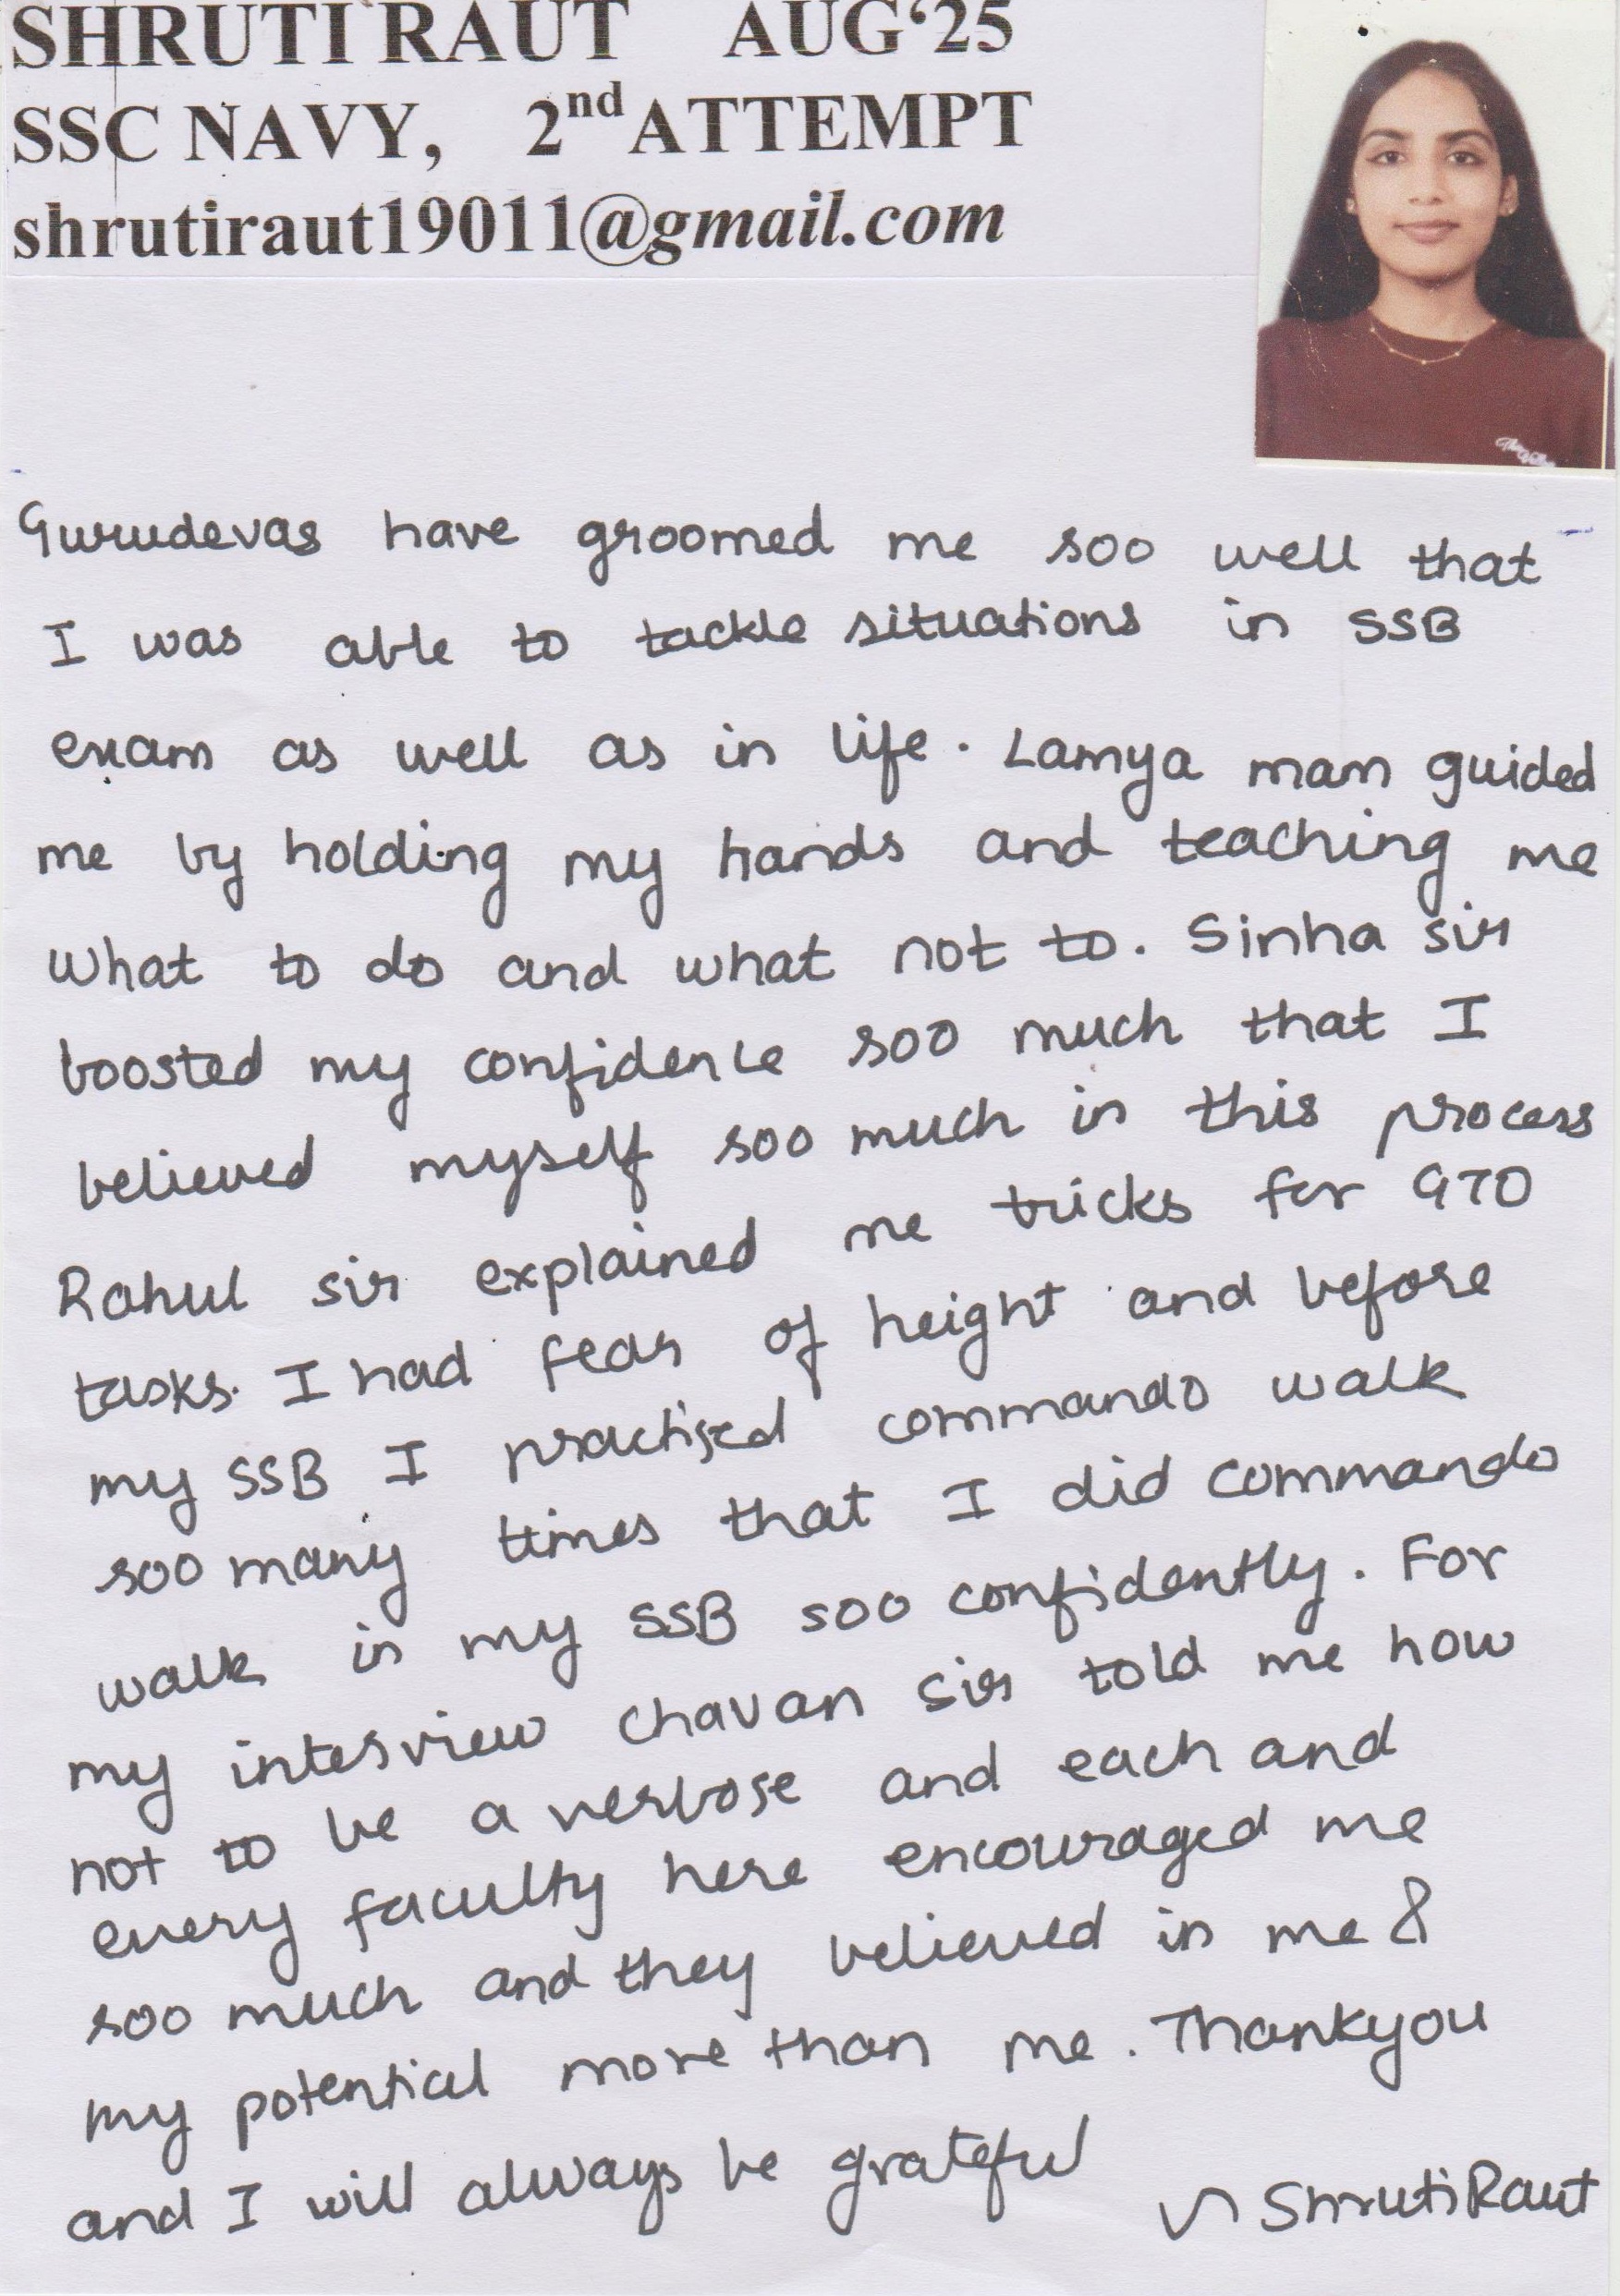 SHRUTI RAUT AUG‘25
SSC NAVY, 2nd ATTEMPT
shrutiraut19011@gmail.com
Gurudevas have groomed me soo well that
I was able to tackle situations in SSB
exam as well as in life. Lamya mam guided
me by holding my hands and teaching me
what to do and what not to. Sinha sir
boosted my confidence soo much that I
believed myself soo much in this process
Rahul sir explained me tricks for GTO
tasks. I had fear of height and before
my SSB I practised commando walk
soo many times that I did commando
walk in my SSB soo confidently. For
my interview chavan sir told me how
not to be a verbose and each and
every faculty here encouraged me
soo much and they believed in me &
my potential more than me. Thankyou
and I will always be grateful
Shruti Raut